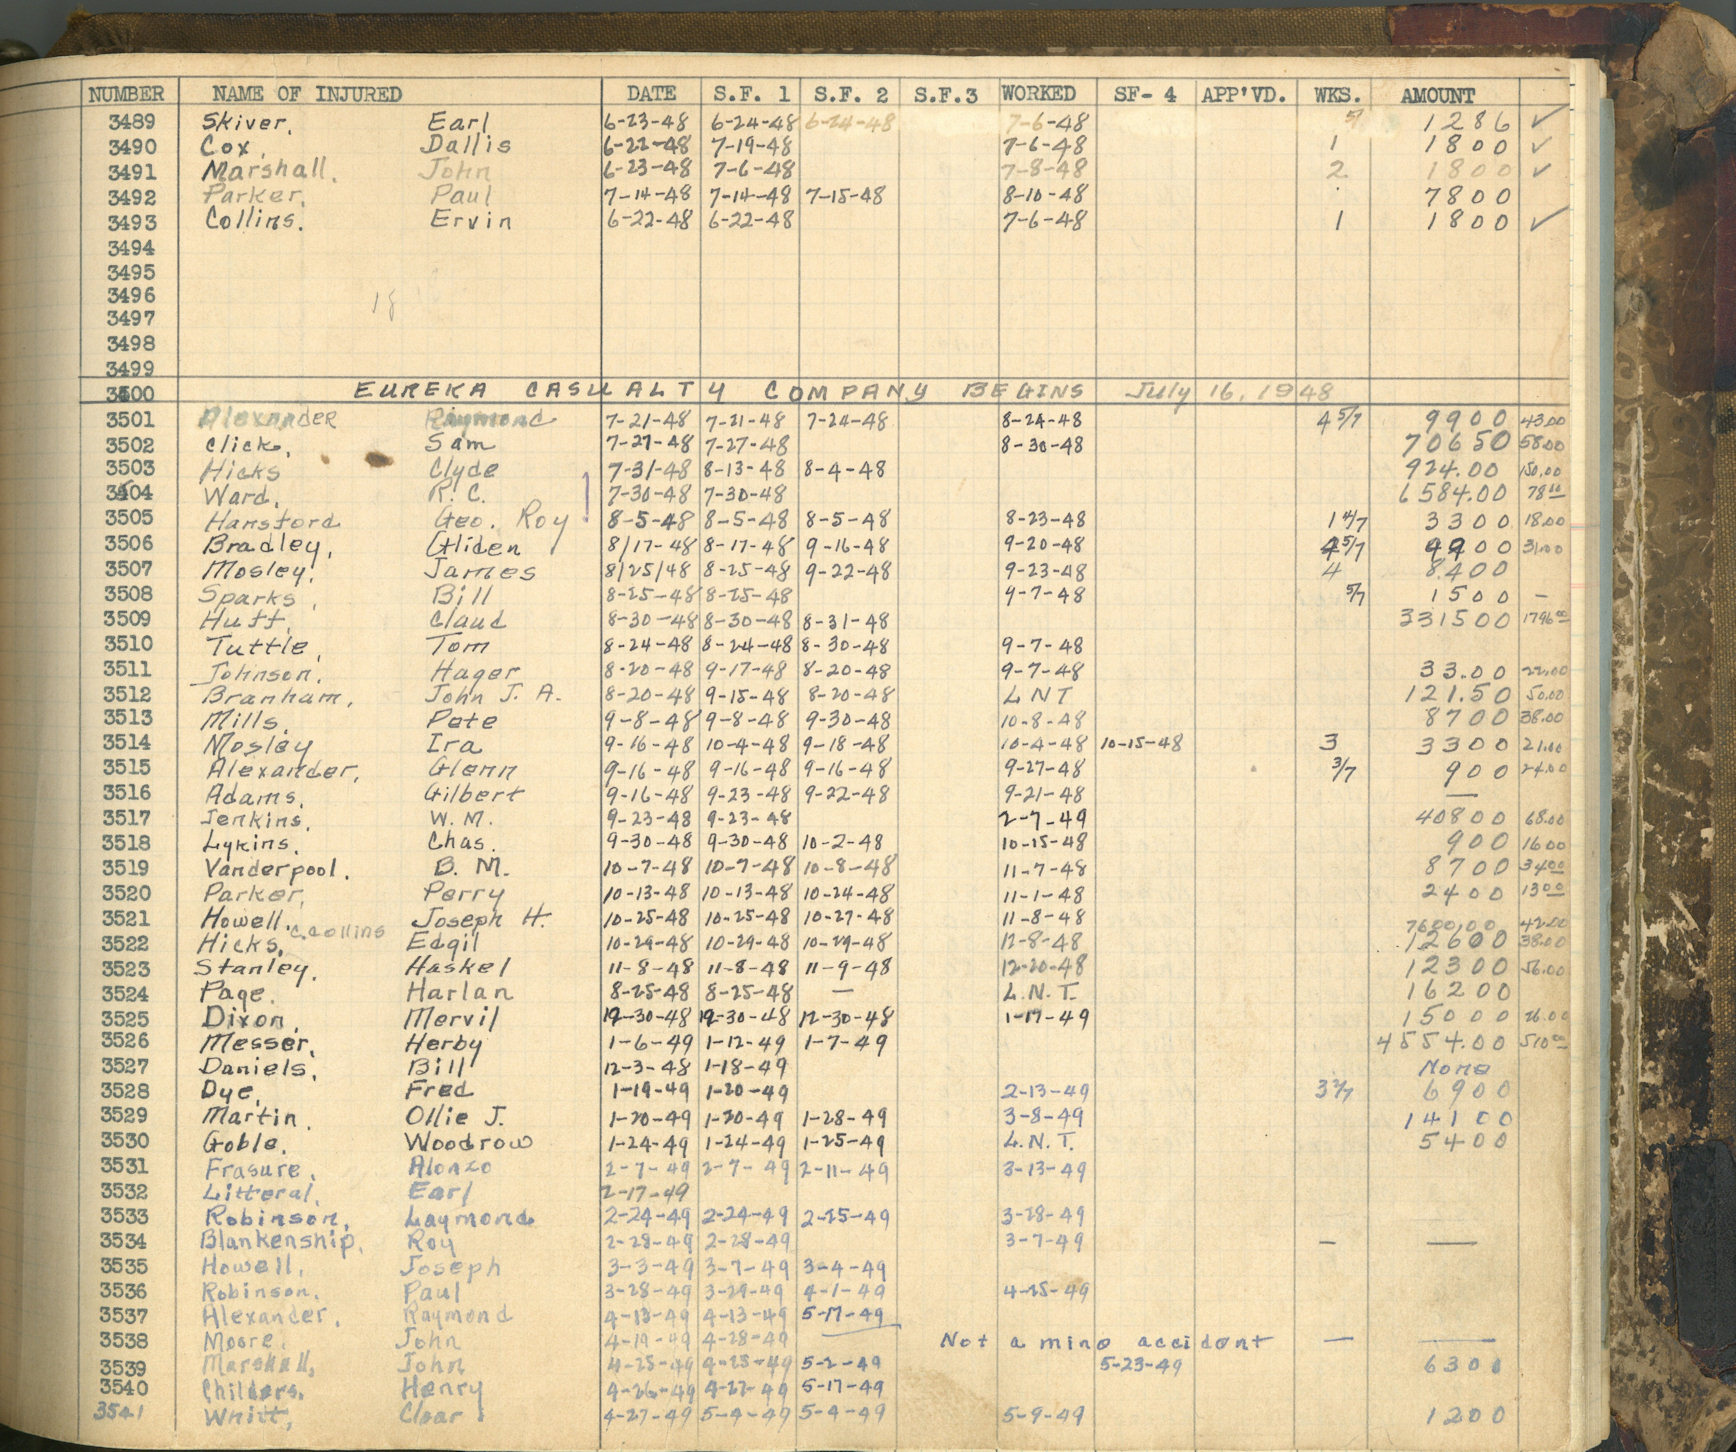 NUMBER NAME OF INJURED DATE S.F. 1 S.F. 2 S.F.3 WORKED SF-4 APP'VD. WKS. AMOUNT
3489 Skiver, Earl 6-23-48 6-24-48 6-24-48 7-6-48 5/7 1286 ✓
3490 Cox, Dallis 6-22-48 7-19-48 7-6-48 1 1800 ✓
3491 Marshall, John 6-23-48 7-6-48 7-8-48 2 1800 ✓
3492 Parker, Paul 7-14-48 7-14-48 7-15-48 8-10-48 7800
3493 Collins, Ervin 6-22-48 6-22-48 7-6-48 1 1800 ✓
3494
3495
3496
3497 18
3498
3499
3500 EUREKA CASUALTY COMPANY BEGINS July 16, 1948
3501 Alexander Raymond 7-21-48 7-21-48 7-24-48 8-24-48 4 5/7 9900 43.00
3502 Click, Sam 7-27-48 7-27-48 8-30-48 70650 58.00
3503 Hicks Clyde 7-31-48 8-13-48 8-4-48 924.00 150.00
3504 Ward, R. C. 7-30-48 7-30-48 6584.00 78.00
3505 Hansford Geo. Roy 8-5-48 8-5-48 8-5-48 8-23-48 1 4/7 3300 18.00
3506 Bradley, Gliden 8/17-48 8-17-48 9-16-48 9-20-48 4 5/7 9900 31.00
3507 Mosley, James 8/25/48 8-25-48 9-22-48 9-23-48 4 8400
3508 Sparks, Bill 8-25-48 8-25-48 9-7-48 5/7 1500 —
3509 Huff, Claud 8-30-48 8-30-48 8-31-48 331500 1796.00
3510 Tuttle, Tom 8-24-48 8-24-48 8-30-48 9-7-48
3511 Johnson, Hager 8-20-48 9-17-48 8-20-48 9-7-48 33.00 22.00
3512 Branham, John J. A. 8-20-48 9-15-48 8-20-48 LNT 121.50 50.00
3513 Mills, Pete 9-8-48 9-8-48 9-30-48 10-8-48 8700 38.00
3514 Mosley Ira 9-16-48 10-4-48 9-18-48 10-4-48 10-15-48 3 3300 21.00
3515 Alexander, Glenn 9-16-48 9-16-48 9-16-48 9-27-48 3/7 900 24.00
3516 Adams, Gilbert 9-16-48 9-23-48 9-22-48 9-21-48 —
3517 Jenkins, W. M. 9-23-48 9-23-48 2-7-49 40800 68.00
3518 Lykins, Chas. 9-30-48 9-30-48 10-2-48 10-15-48 900 16.00
3519 Vanderpool, B. M. 10-7-48 10-7-48 10-8-48 11-7-48 8700 34.00
3520 Parker, Perry 10-13-48 10-13-48 10-24-48 11-1-48 2400 13.00
3521 Howell, Joseph H. 10-25-48 10-25-48 10-27-48 11-8-48 7600.00 42.00
3522 Hicks, C. Collins Edgil 10-29-48 10-29-48 10-29-48 12-8-48 12600 38.00
3523 Stanley, Haskel 11-8-48 11-8-48 11-9-48 12-20-48 12300 56.00
3524 Page, Harlan 8-25-48 8-25-48 — L.N.T. 16200
3525 Dixon, Mervil 12-30-48 12-30-48 12-30-48 1-17-49 15000 26.00
3526 Messer, Herby 1-6-49 1-12-49 1-7-49 4554.00 510.00
3527 Daniels, Bill 12-3-48 1-18-49 None
3528 Dye, Fred 1-19-49 1-20-49 2-13-49 3 2/7 6900
3529 Martin, Ollie J. 1-20-49 1-20-49 1-28-49 3-8-49 14100
3530 Goble, Woodrow 1-24-49 1-24-49 1-25-49 L.N.T. 5400
3531 Frasure, Alonzo 2-7-49 2-7-49 2-11-49 3-13-49
3532 Litteral, Earl 2-17-49
3533 Robinson, Laymond 2-24-49 2-24-49 2-25-49 3-28-49
3534 Blankenship, Roy 2-28-49 2-28-49 3-7-49 — —
3535 Howell, Joseph 3-3-49 3-7-49 3-4-49
3536 Robinson, Paul 3-28-49 3-29-49 4-1-49 4-25-49
3537 Alexander, Raymond 4-13-49 4-13-49 5-17-49
3538 Moore, John 4-19-49 4-28-49 — Not a mine accident — —
3539 Marshall, John 4-25-49 4-25-49 5-2-49 5-23-49 6300
3540 Childers, Henry 4-26-49 4-27-49 5-17-49
3541 Whitt, Clear 4-27-49 5-4-49 5-4-49 5-9-49 1200